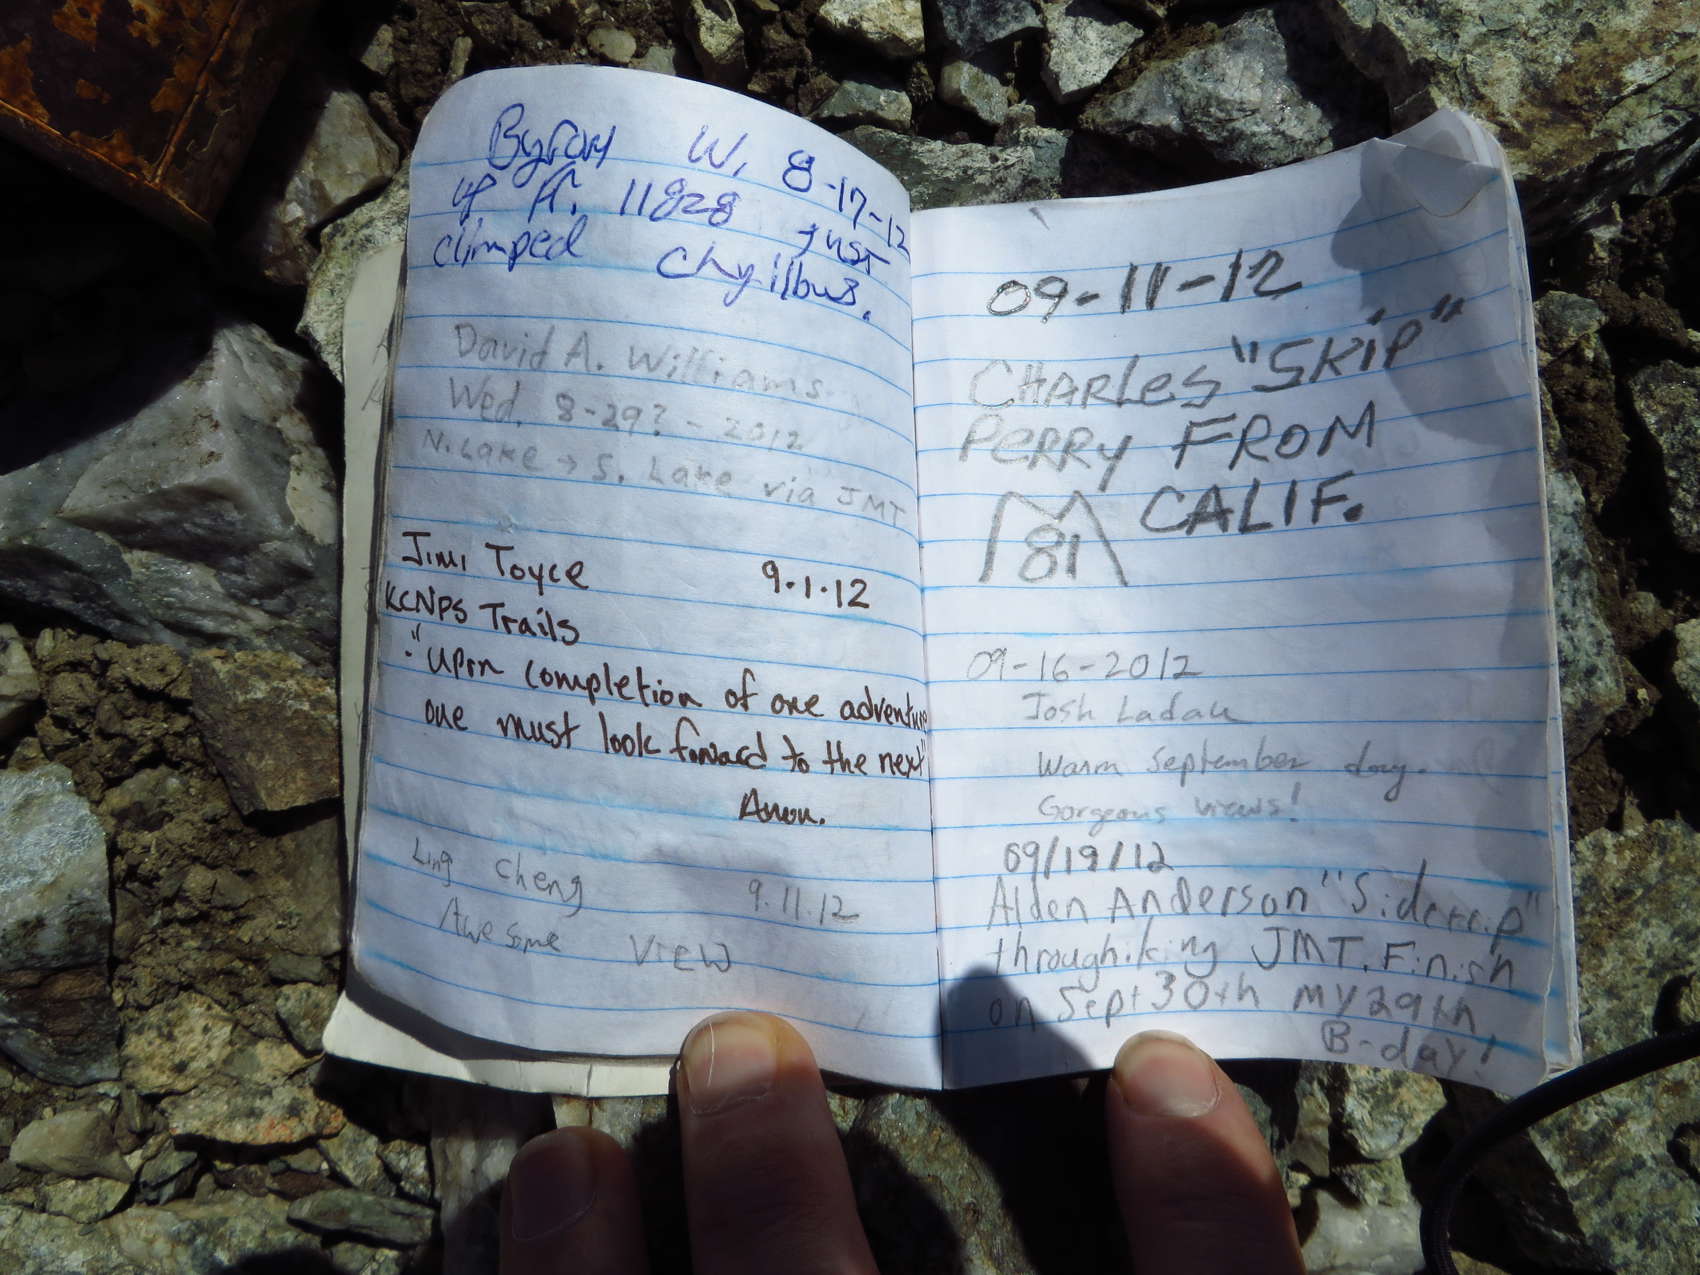 Byron W. 8-17-12
up ft. 11828 Just
climped Chyllbus.
David A. Williams
Wed. 8-29? - 2012
N. Lake → S. Lake via JMT
Jimi Toyce 9.1.12
KCNPS Trails
"Upon completion of one adventure
one must look forward to the next"
Anon.
Ling Cheng 9.11.12
Awesome View
09-11-12
CHARLES "SKIP"
PERRY FROM
CALIF.
81
09-16-2012
Josh Ladau
Warm September day.
Gorgeous views!
09/19/12
Alden Anderson "Sidetrip"
throughiking JMT. Finish
on Sept 30th my 29th
B-day!